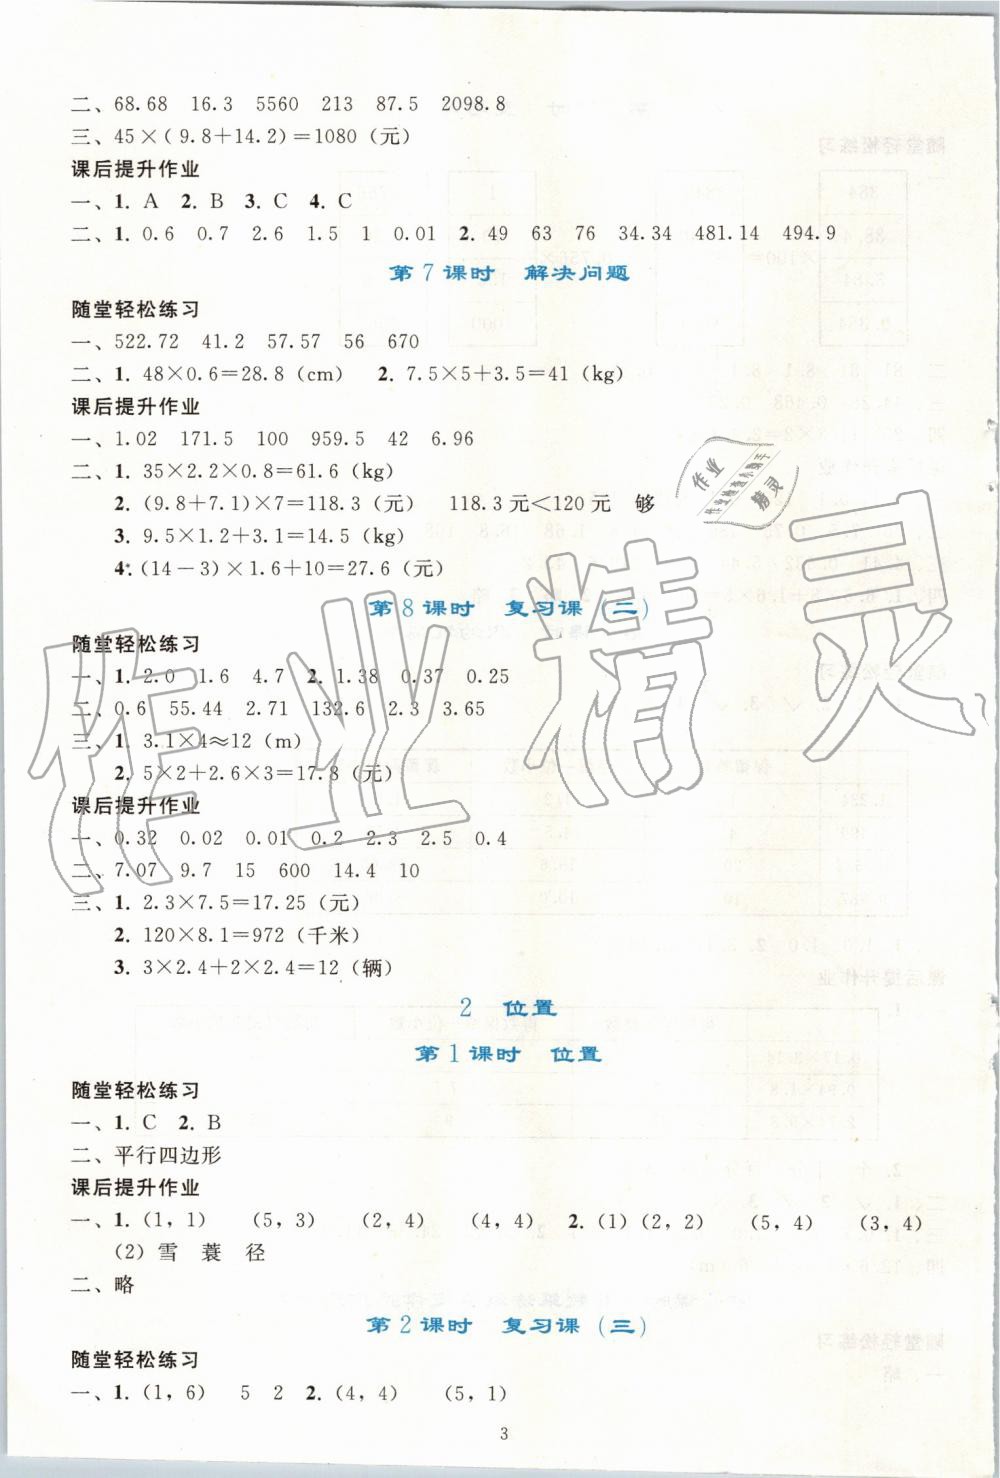 二、68.68 16.3 5560 213 87.5 2098.8
三、45×(9.8+14.2)=1080（元）
课后提升作业
一、1. A 2. B 3. C 4. C
二、1. 0.6 0.7 2.6 1.5 1 0.01 2. 49 63 76 34.34 481.14 494.9
第7课时 解决问题
随堂轻松练习
一、522.72 41.2 57.57 56 670
二、1. 48×0.6=28.8（cm） 2. 7.5×5+3.5=41（kg）
课后提升作业
一、1.02 171.5 100 959.5 42 6.96
二、1. 35×2.2×0.8=61.6（kg）
2. (9.8+7.1)×7=118.3（元） 118.3元<120元 够
3. 9.5×1.2+3.1=14.5（kg）
4. (14-3)×1.6+10=27.6（元）
第8课时 复习课（二）
随堂轻松练习
一、1. 2.0 1.6 4.7 2. 1.38 0.37 0.25
二、0.6 55.44 2.71 132.6 2.3 3.65
三、1. 3.1×4≈12（m）
2. 5×2+2.6×3=17.8（元）
课后提升作业
一、0.32 0.02 0.01 0.2 2.3 2.5 0.4
二、7.07 9.7 15 600 14.4 10
三、1. 2.3×7.5=17.25（元）
2. 120×8.1=972（千米）
3. 3×2.4+2×2.4=12（辆）
2 位置
第1课时 位置
随堂轻松练习
一、1. C 2. B
二、平行四边形
课后提升作业
一、1.（1，1） （5，3） （2，4） （4，4） 2.（1）（2，2） （5，4） （3，4）
（2）雪 蓑 径
二、略
第2课时 复习课（三）
随堂轻松练习
一、1.（1，6） 5 2 2.（4，4） （5，1）
3
作业精灵
作业
精灵